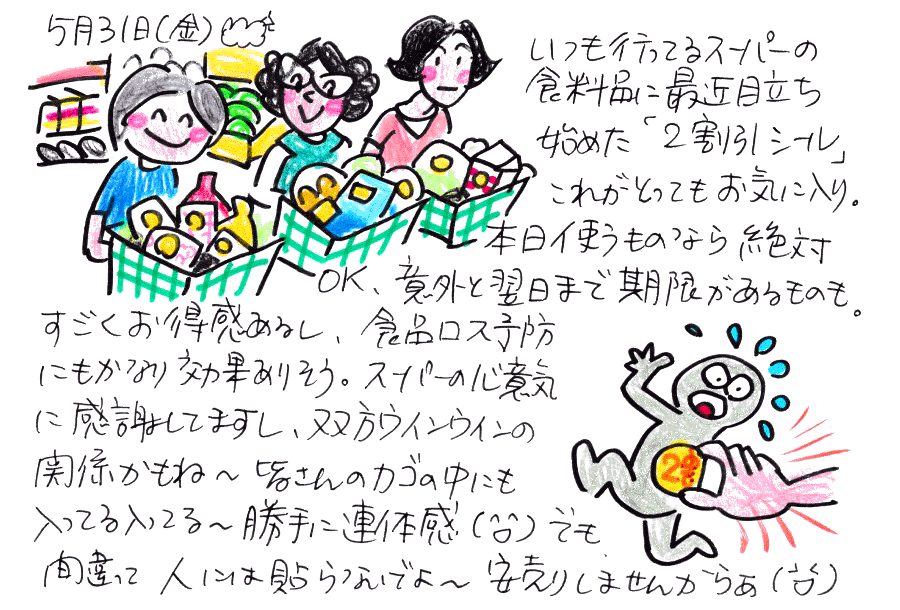 5月31日(金)
いつも行ってるスーパーの
食料品に最近目立ち
始めた「2割引シール」
これがとってもお気に入り。
本日使うものなら絶対
OK、意外と翌日まで期限があるものも。
すごくお得感あるし、食品ロス予防
にもかなり効果ありそう。スーパーの心意気
に感謝してますし、双方ウインウインの
関係かもね〜皆さんのカゴの中にも
入ってる入ってる〜勝手に連体感(^^)でも
間違って人には貼らないでよ〜安売りしませんからぁ(^^)
2割